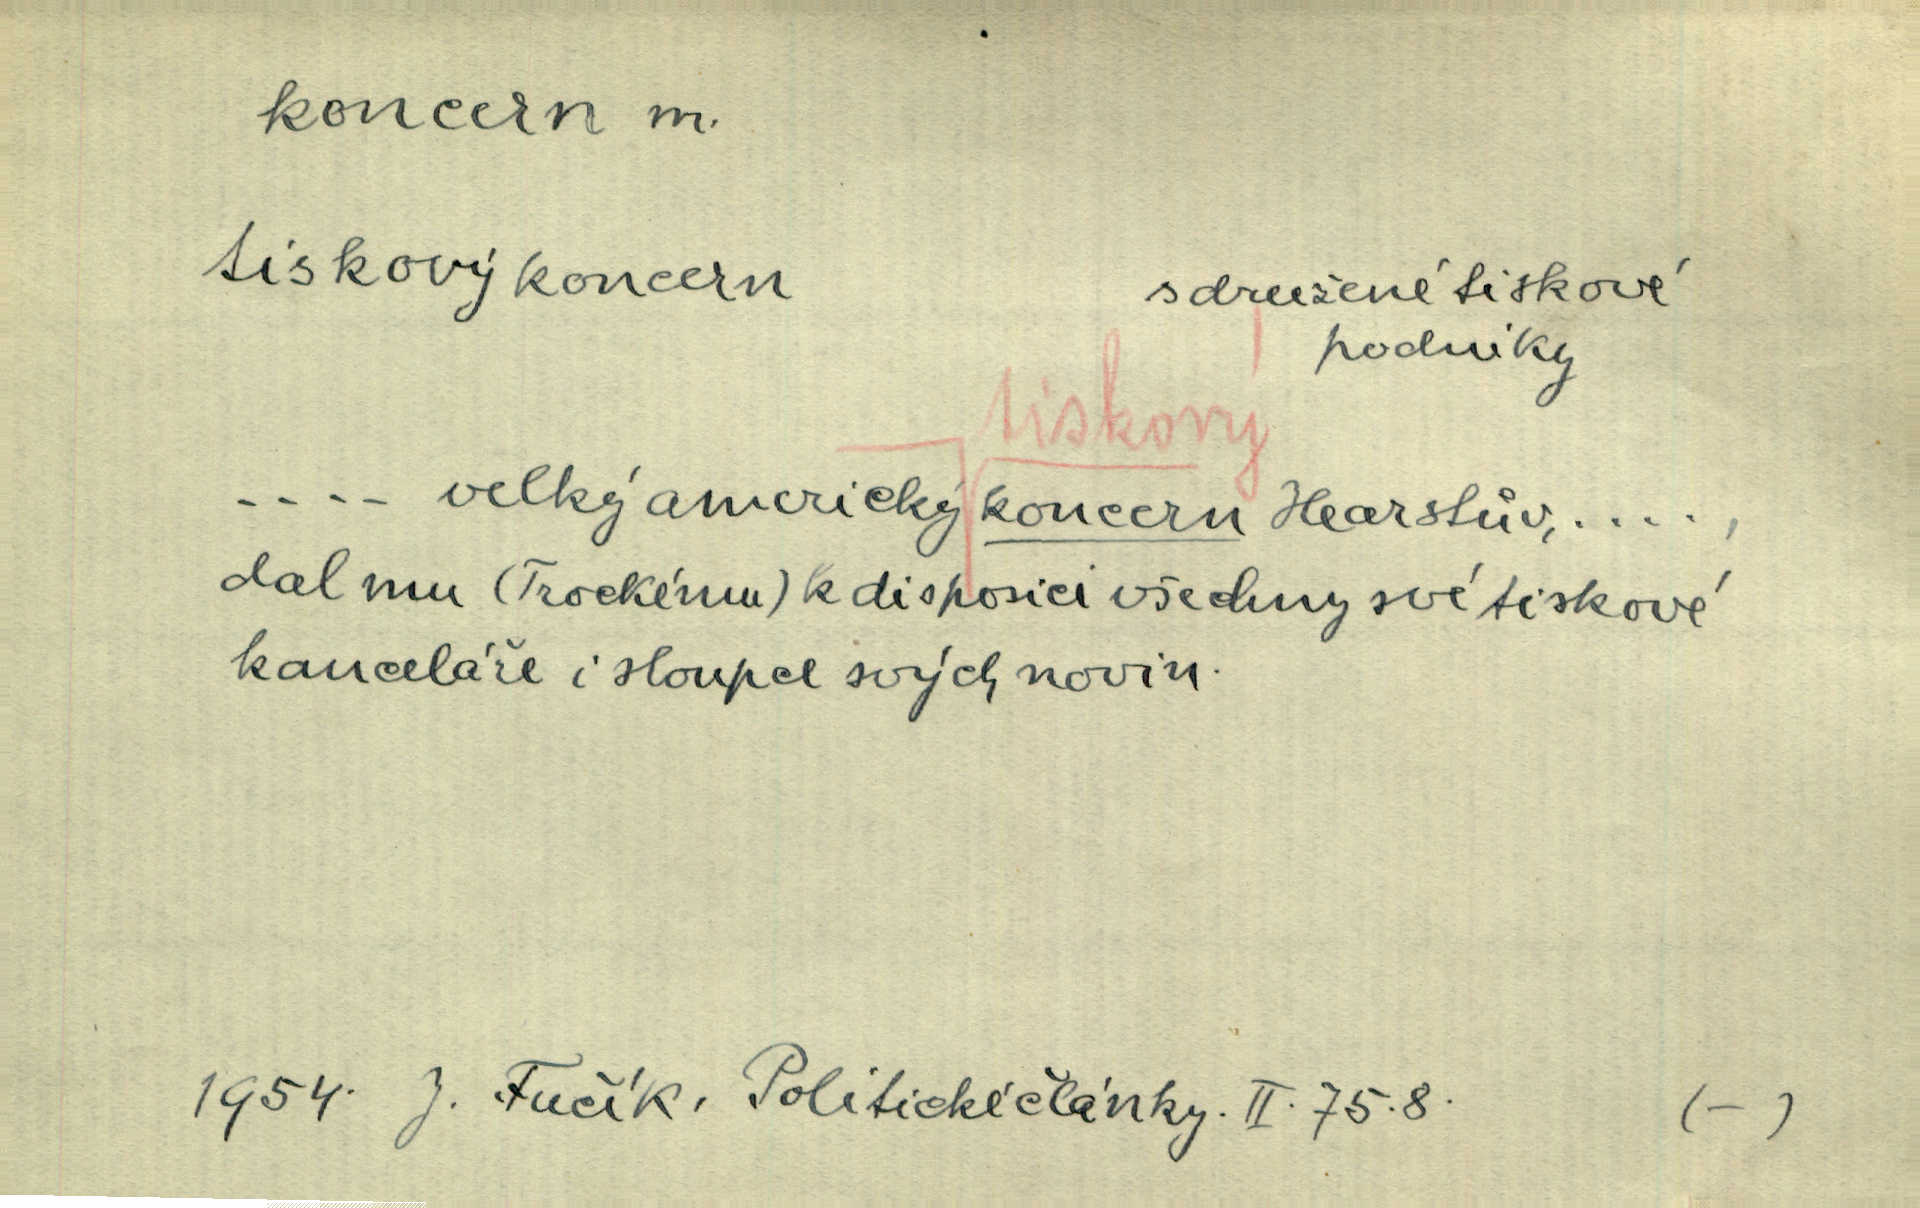 koncern m.
tiskový koncern
sdružené tiskové
podniky
tiskový
---- velký americký koncern Hearstův, ....,
dal mu (Trockému) k disposici všechny své tiskové
kanceláře i sloupce svých novin.
1954. J. Fučík, Politické články. II. 75.8. (-)